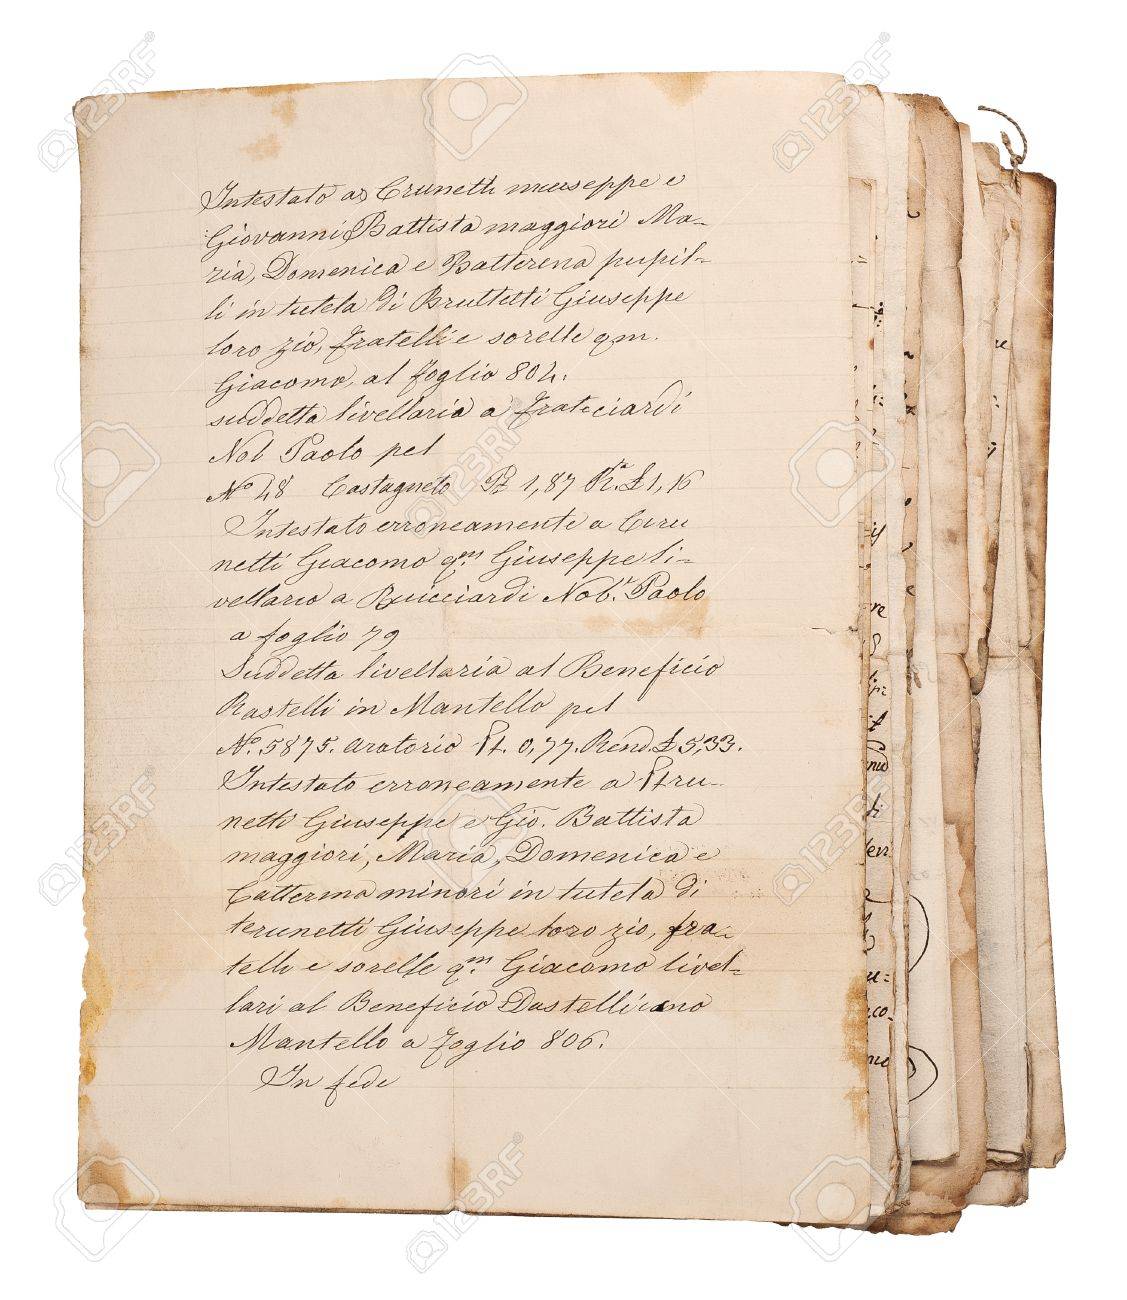 Intestato as Crunetti museppe e
Giovanni Battista maggiori Ma-
ria, Domenica e Batterena pupil-
li in tutela di Bruttetti Giuseppe
loro zio, fratelli e sorelle qm.
Giacomo, al foglio 804.
suddetta livellaria a Frateciardi
Nob Paolo pel
No 48 Castagneto P 1,87 Ra. £ 1,16
Intestato erroneamente a Cru
netti Giacomo qm Giuseppe li-
vellario a Ruicciardi Nob.r Paolo
a foglio 79
Suddetta livellaria al Beneficio
Rastelli in Mantello pel
No. 5875. aratorio Pt. 0,77. Rend. £ 5,33.
Intestato erroneamente a Ptru-
netti Giuseppe e Gio. Battista
maggiori, Maria, Domenica e
Catterina minori in tutela di
terunetti Giuseppe loro zio, fra-
telli e sorelle qm Giacomo livel-
lari al Beneficio Dastelli in
Mantello a foglio 806.
In fede
123RF